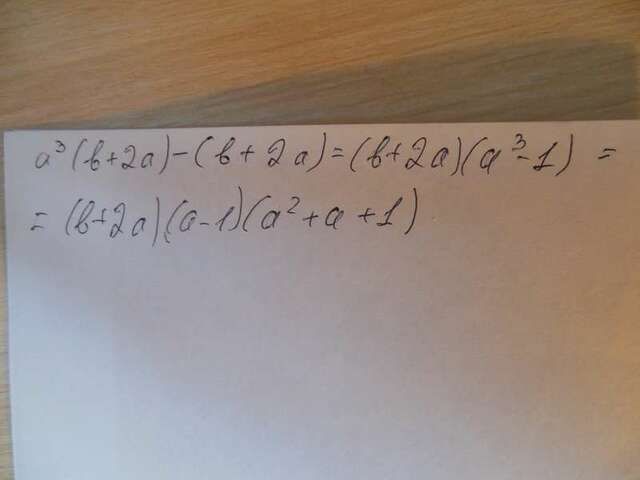 a³(b+2a)-(b+2a)=(b+2a)(a³-1)=
=(b+2a)(a-1)(a²+a+1)